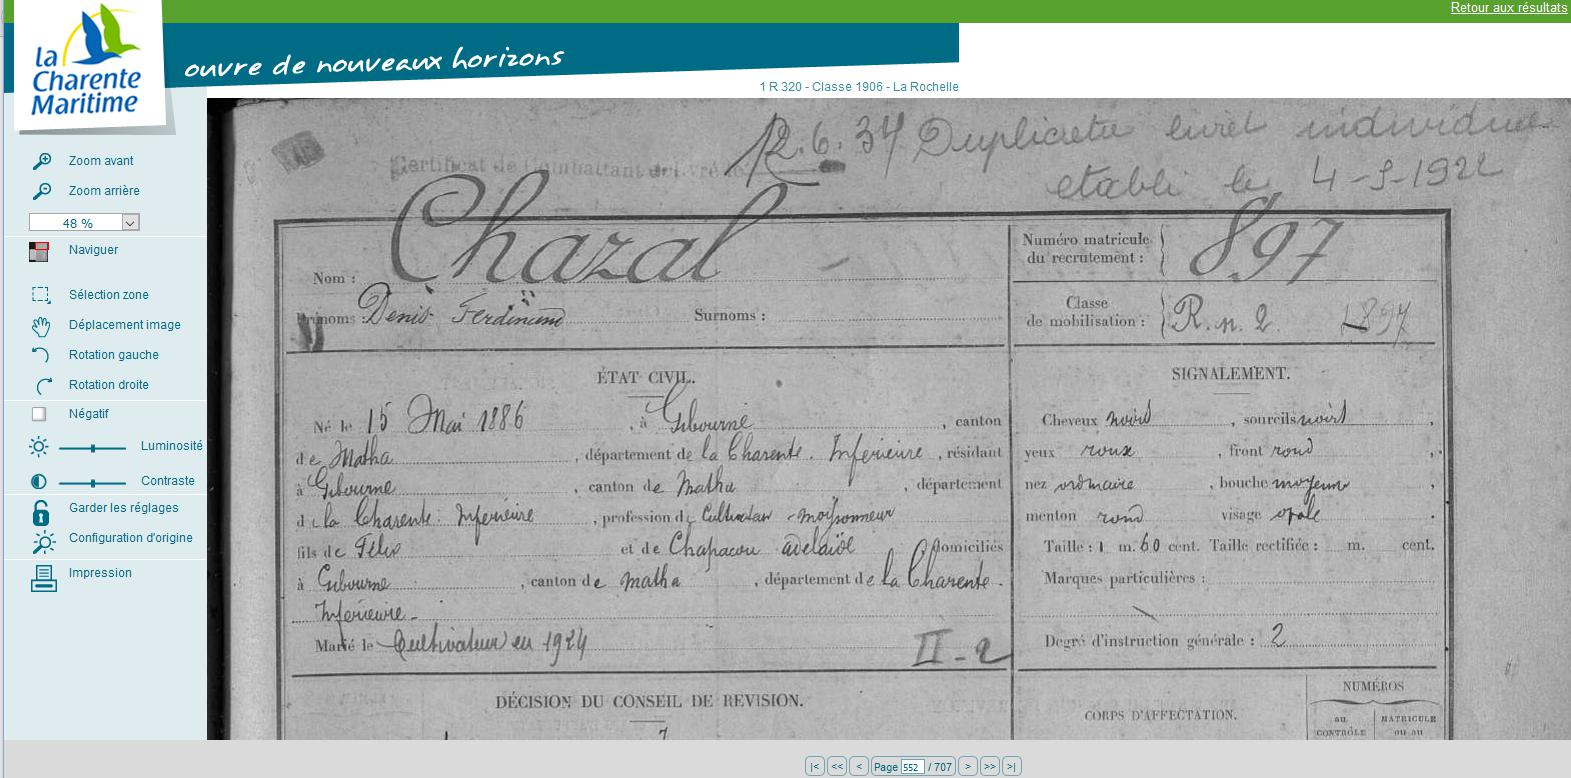 Retour aux résultats
la Charente Maritime
ouvre de nouveaux horizons
1 R 320 - Classe 1906 - La Rochelle
Zoom avant
Zoom arrière
48 %
Naviguer
Sélection zone
Déplacement image
Rotation gauche
Rotation droite
Négatif
Luminosité
Contraste
Garder les réglages
Configuration d'origine
Impression
Certificat de Combattant délivré le 12.6.34 Duplicata livret individuel
établi le 4-9-1922
Nom : Chazal
Numéro matricule du recrutement : 897
Prénoms : Denis Ferdinand Surnoms :
Classe de mobilisation : R. n. 2. 1897
ÉTAT CIVIL.
Né le 15 Mai 1886, à Gibourne, canton
de Matha, département de la Charente Inférieure, résidant
à Gibourne, canton de Matha, département
de la Charente Inférieure, profession de Cultivateur - moissonneur
fils de Félix et de Chapacou adelaïde domiciliés
à Gibourne, canton de matha, département de la Charente
Inférieure
Marié le Cultivateur en 1924
II - 2
SIGNALEMENT.
Cheveux noirs, sourcils noirs,
yeux roux, front rond,
nez ordinaire, bouche moyenne,
menton rond visage ovale.
Taille : 1 m. 60 cent. Taille rectifiée : m. cent.
Marques particulières :
Degré d'instruction générale : 2
DÉCISION DU CONSEIL DE REVISION.
CORPS D'AFFECTATION.
NUMÉROS
au CONTRÔLE
MATRICULE ou au
|< << < Page 552 / 707 > >> >|